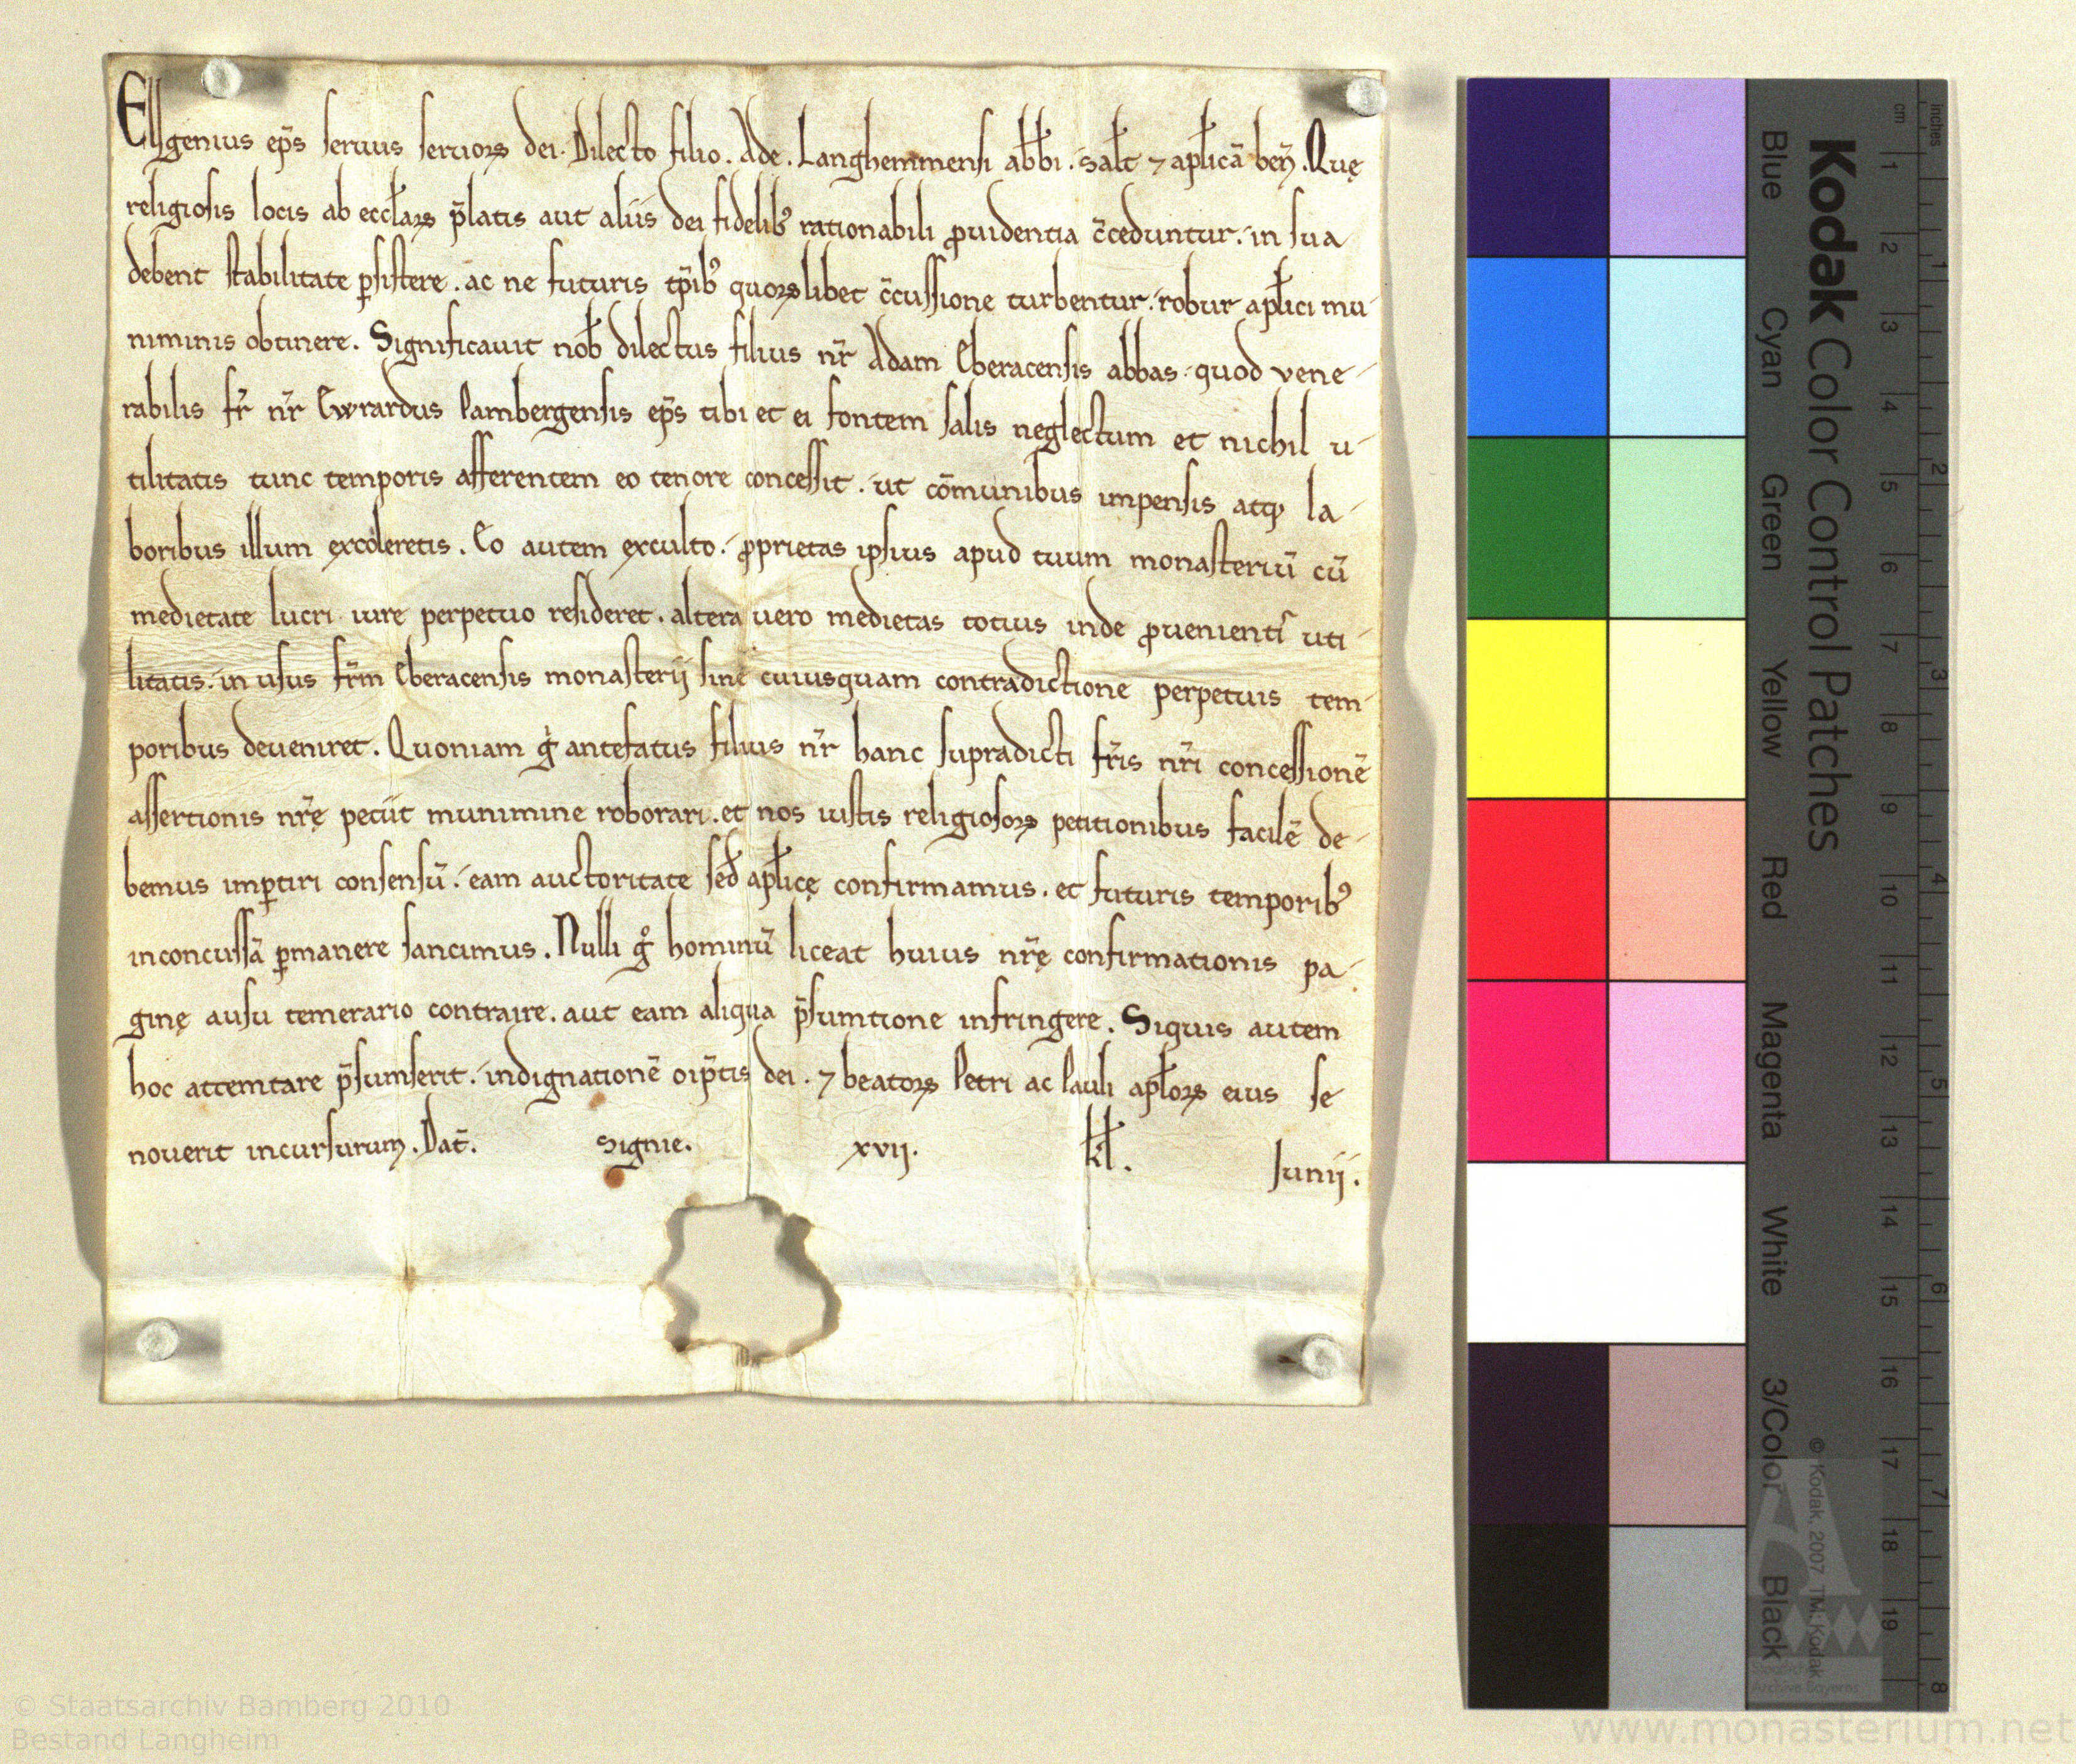 EUgenius ep̄s seruus seruoꝝ dei. Dilecto filio. Ade. Langhemmensi abb̄i. Sal̄t ⁊ apl̄icā ben̄. Quę
religiosis locis ab eccl̄aꝝ p̄latis aut aliis dei fidelib᾽ rationabili ꝓuidentia c̄ceduntur. in sua
debent stabilitate ꝑsistere. ac ne futuris tp̄ib᾽ quoꝝlibet c̄cussione turbentur. robur apl̄ici mu-
niminis obtinere. Significauit nob̄ dilectus filius nr̄ Adam Eberacensis abbas. quod vene-
rabilis fr̄ nr̄ Ewrardus Pambergensis ep̄s tibi et ei fontem salis neglectum et nichil u-
tilitatis tunc temporis afferentem eo tenore concessit. ut cōmunibus impensis atq; la-
boribus illum excoleretis. Eo autem exculto. ꝓprietas ipsius apud tuum monasteriū cū
medietate lucri iure perpetuo resideret. altera uero medietas totius inde ꝓuenientis uti-
litatis. in usus fr̄m Eberacensis monasterij sine cuiusquam contradictione perpetuis tem-
poribus deueniret. Quoniam gͦ antefatus filius nr̄ hanc supradicti fr̄is nr̄i concessionē
assertionis nr̄ę petiit munimine roborari. et nos iustis religiosoꝝ petitionibus facilē de-
bemus imꝑtiri consensū. eam auctoritate sed̄ apl̄icę confirmamus. et futuris temporib᾽
inconcussā ꝑmanere sancimus. Nulli gͦ hominū liceat huius nr̄ę confirmationis pa-
ginę ausu temerario contraire. aut eam aliqua p̄sumtione infringere. Siquis autem
hoc attemtare p̄sumserit. indignationē oip̄tis dei. ⁊ beatoꝝ Petri ac Pauli apl̄oꝝ eius se
nouerit incursurum. Dat̄. Signie. xvij. kl̄. Junij.
Kodak Color Control Patches
Blue Cyan Green Yellow Red Magenta White 3/Color Black
© Kodak, 2007 TM: Kodak
cm 1 2 3 4 5 6 7 8 9 10 11 12 13 14 15 16 17 18 19
inches 1 2 3 4 5 6 7 8
© Staatsarchiv Bamberg 2010
Bestand Langheim
www.monasterium.net